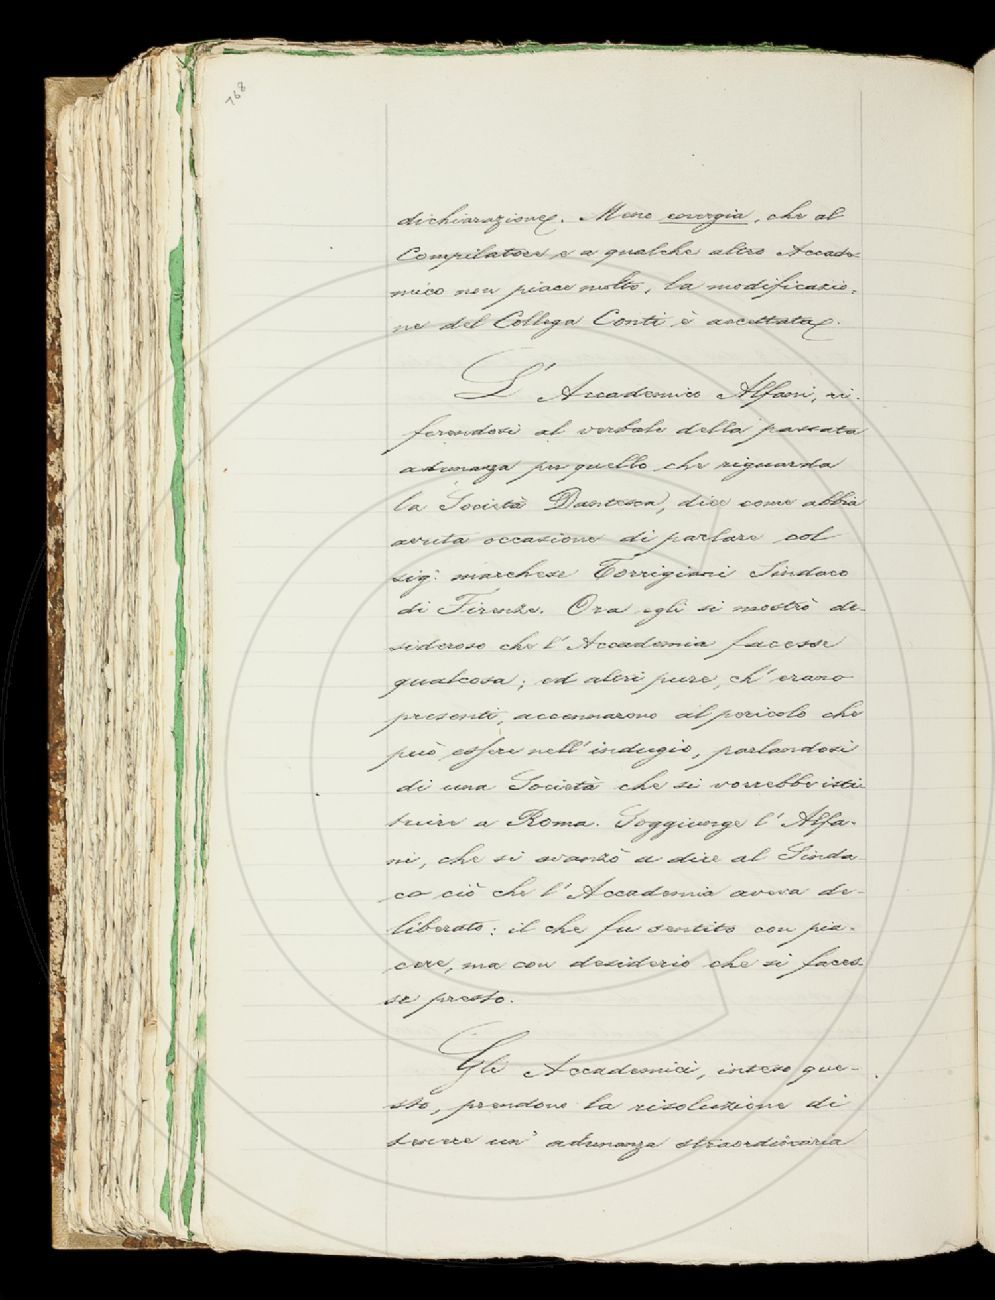 768
dichiarazione. Meno energia, che al
Compilatore e a qualche altro Accade-
mico non piace molto, la modificazio-
ne del Collega Conti è accettata.
L'Accademico Alfani, ri-
ferendosi al verbale della passata
adunanza per quello che riguarda
la Società Dantesca, dice come abbia
avuta occasione di parlare col
sig.r marchese Torrigiani Sindaco
di Firenze. Ora egli si mostrò de-
sideroso che l'Accademia facesse
qualcosa; ed altri pure, ch'erano
presenti, accennarono al pericolo che
può essere nell'indugio, parlandosi
di una Società che si vorrebbe isti-
tuire a Roma. Soggiunge l'Alfa-
ni, che si avanzò a dire al Sinda-
co ciò che l'Accademia aveva de-
liberato: il che fu sentito con pia-
cere, ma con desiderio che si faces-
se presto.
Gli Accademici, inteso que-
sto, prendono la risoluzione di
tenere un'adunanza straordinaria